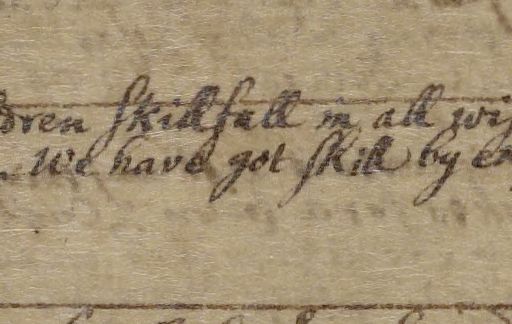 dren skillfull in all wis
We have got skill by ex